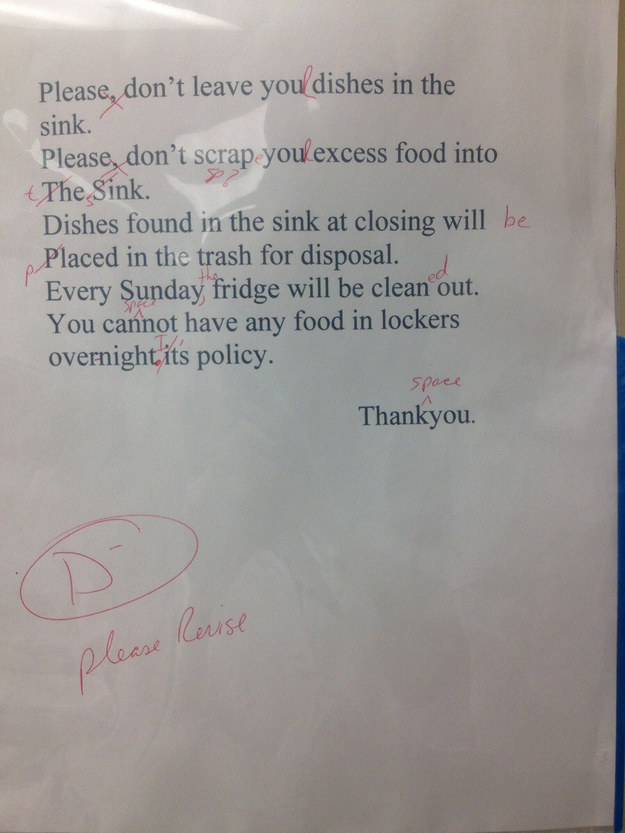 Please, don't leave you dishes in the
sink.
Please, don't scrap e you excess food into
sp?
t The s Sink.
Dishes found in the sink at closing will be
p Placed in the trash for disposal.
the ed
Every Sunday, fridge will be clean out.
space
You cannot have any food in lockers
I '
overnight, its policy.
space
Thankyou.
D-
please Revise